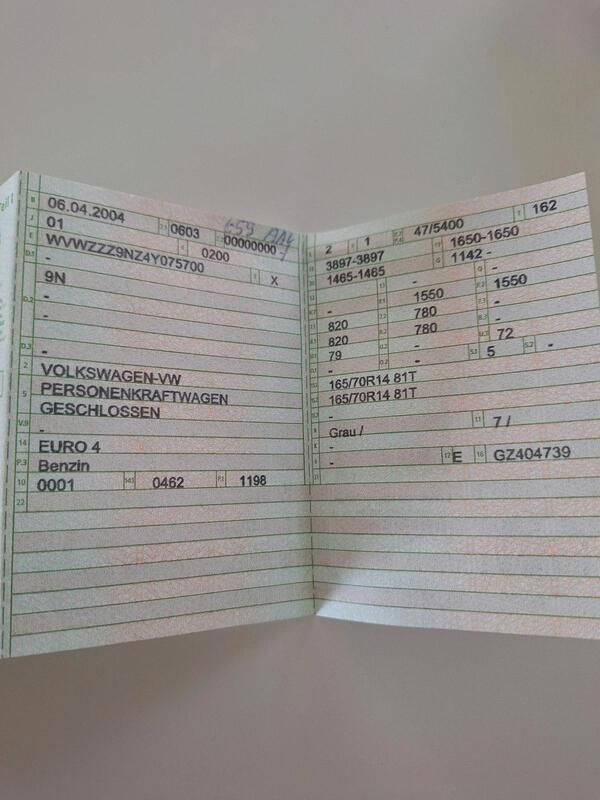 B 06.04.2004 2.1 0603 2.2 00000000
J 01 4 0200
E WVWZZZ9NZ4Y075700 3 X
D.1 -
9N
D.2 -
-
D.3 -
2 VOLKSWAGEN-VW
5 PERSONENKRAFTWAGEN
GESCHLOSSEN
V.9 -
14 EURO 4
P.3 Benzin
10 0001 14.1 0462 P.1 1198
22
L 2 9 1 P.2 P.4 47/5400 T 162
18 3897-3897 19 1650-1650
20 1465-1465 G 1142 -
12 - 13 - Q -
- F.1 1550 F.2 1550
7.1 820 7.2 780 -
8.1 820 8.2 780 U.3 72
79 O.2 - S.1 5 S.2 -
-
15.1 165/70R14 81T
15.2 165/70R14 81T
-
R Grau / 11 7 /
K -
- 17 E 16 GZ404739
21